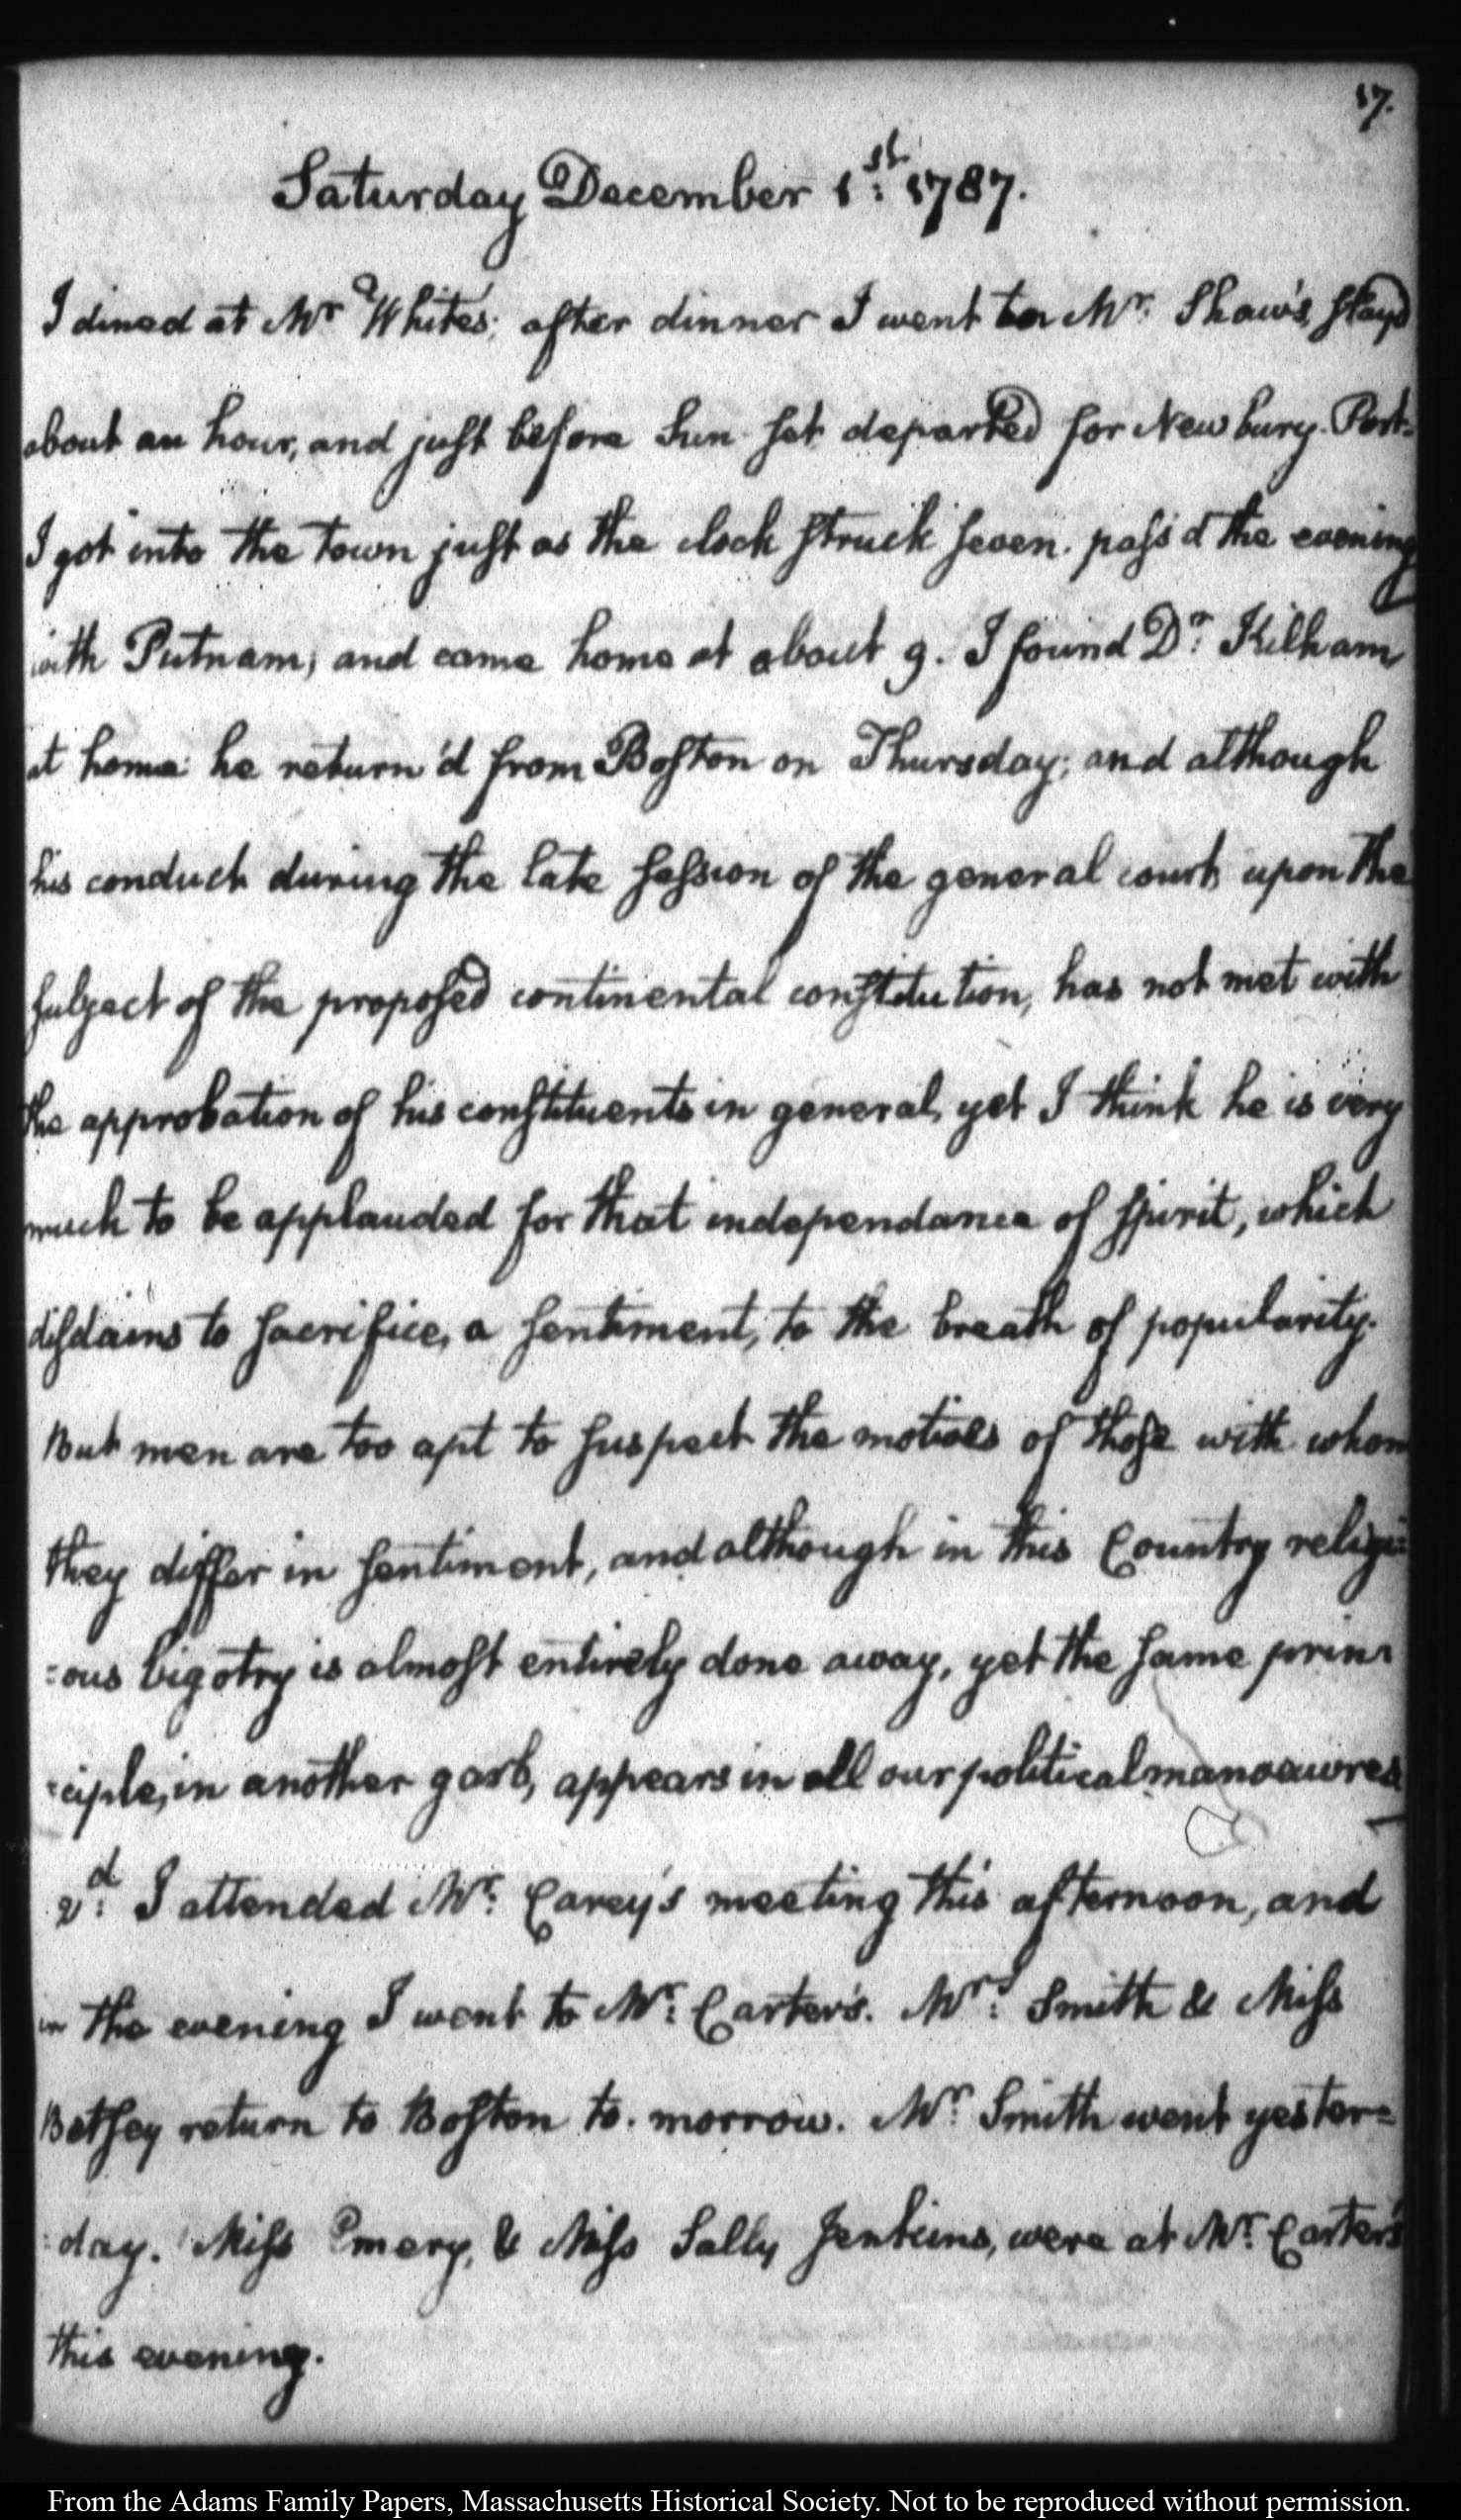 17.
Saturday December 1st. 1787.
I dined at Mr White's; after dinner I went to Mr. Shaw's, stayd
about an hour, and just before Sun set departed for Newbury-Port.
I got into the town just as the clock struck seven. pass'd the evening
with Putnam; and came home at about 9. I found Dr. Kilham
at home: he return'd from Boston on Thursday; and although
his conduct during the late session of the general court, upon the
subject of the proposed continental constitution, has not met with
the approbation of his constituents in general, yet I think he is very
much to be applauded for that independance of spirit, which
disdains to sacrifice, a sentiment, to the breath of popularity.
But men are too apt to suspect the motives of those with whom
they differ in sentiment, and although in this Country religi=
=ous bigotry is almost entirely done away, yet the same prin=
=ciple, in another garb, appears in all our political manoeuvres
2d: I attended Mr. Carey's meeting this afternoon, and
in the evening I went to Mr: Carter's. Mrs: Smith & Miss
Betsey return to Boston to-morrow. Mr: Smith went yester=
=day. Miss Emery, & Miss Sally Jenkins, were at Mr. Carter's
this evening.
From the Adams Family Papers, Massachusetts Historical Society. Not to be reproduced without permission.